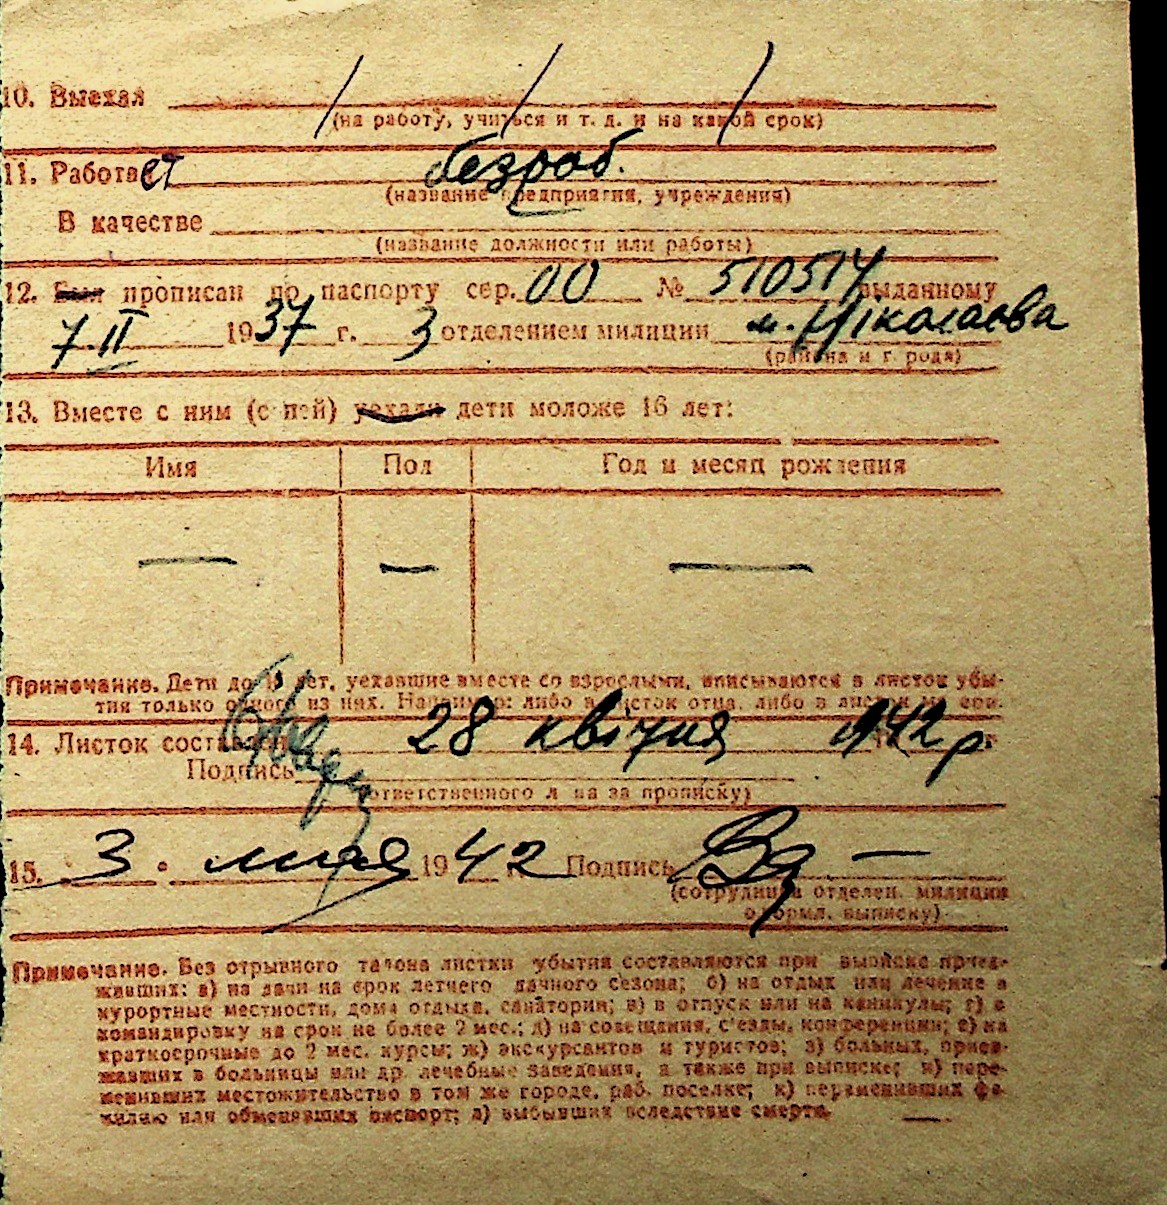 10. Выехал
(на работу, учиться и т. д. и на какой срок)
11. Работает безроб.
(название предприятия, учреждения)
В качестве
(название должности или работы)
12. Был прописан по паспорту сер. 00 № 510514 выданному
7.II 1937 г. 3 отделением милиции м. Ніколаєва
(района и города)
13. Вместе с ним (с ней) уехали дети моложе 16 лет:
Имя Пол Год и месяц рождения
— — —
Примечание. Дети до лет, уехавшие вместе со взрослыми, вписываются в листок убы-
тия только одного из них. Например: либо в листок отца, либо в листок матери.
14. Листок составлен 28 квітня 1942 р г
Подпись
(ответственного лица за прописку)
15. 3 мая 1942 Подпись
(сотрудника отделен. милиции
оформл. выписку)
Примечание. Без отрывного талона листки убытия составляются при выписке приез-
жавших: а) на дачи на срок летнего дачного сезона; б) на отдых или лечение в
курортные местности, дома отдыха, санатории; в) в отпуск или на каникулы; г) в
командировку на срок не более 2 мес.; д) на совещания, с'езды, конференции; е) на
краткосрочные до 2 мес. курсы; ж) экскурсантов и туристов; з) больных, приез-
жавших в больницы или др. лечебные заведения, а также при выписке: и) пере-
менивших местожительство в том же городе, раб. поселке; к) переменивших фа-
милию или обменявших паспорт; л) выбывших вследствие смерти.